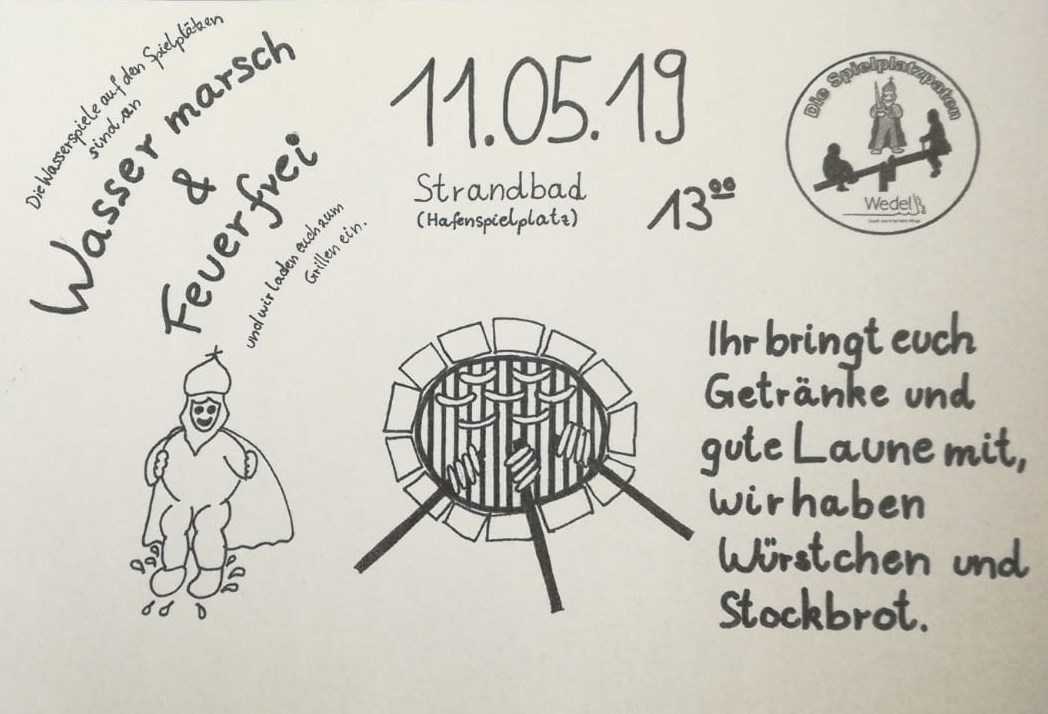 Die Wasserspiele auf den Spielplätzen
sind an
Wasser marsch
&
Feuerfrei
und wir laden euch zum
Grillen ein.
11.05.19
Strandbad
(Hafenspielplatz)
13⁰⁰
Die Spielplatzpaten
Wedel
Ihr bringt euch
Getränke und
gute Laune mit,
wir haben
Würstchen und
Stockbrot.